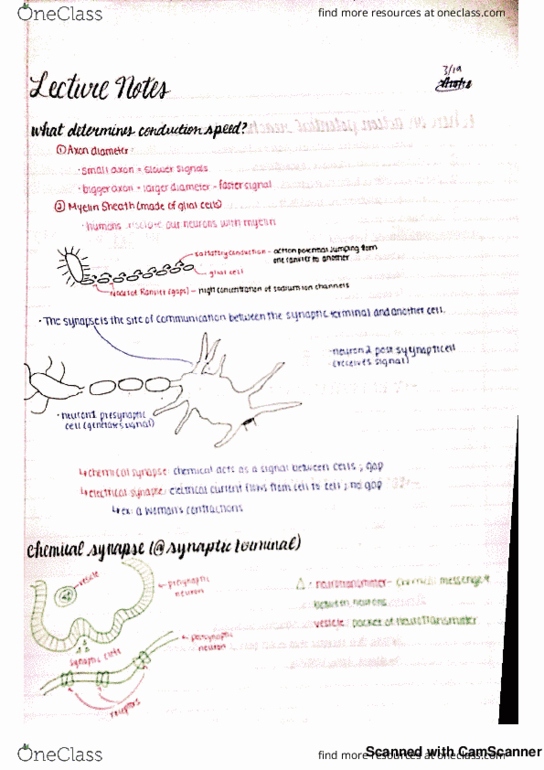 OneClass
find more resources at oneclass.com
3/19
Lecture Notes
what determines conduction speed?
① Axon diameter
· small axon = slower signals
· bigger axon - larger diameter - faster signal
② Myelin Sheath (made of glial cells)
· humans insulate our neurons with myelin
saltatory conduction - action potential jumping from
one ranvier to another
glial cell
nodes of Ranvier (gaps) - high concentration of sodium ion channels
· The synapse is the site of communication between the synaptic terminal and another cell.
· neuron 2 post sysynapticcell
(receives signal)
· neuron 1 presynaptic
cell (generates signal)
↳ chemical synapse: chemical acts as a signal between cells ; gap
↳ electrical synapse: electrical current flows from cell to cell ; no gap
↳ ex: a woman's contractions
chemical synapse (@ synaptic terminal)
vesicle
presynaptic
neuron
△ - neurotransmitter - chemical messenger
between neurons
vesicle : packet of neurotransmitter
synaptic cleft
postsynaptic
neuron
receptors
OneClass
find more resources at oneclass.com
Scanned with CamScanner